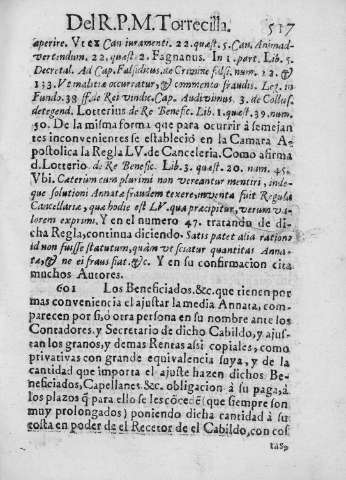 Del R. P. M. Torrecilla. 517
aperire. Vt ex Can iuramenti. 22. quæst. 5. Can. Animad-
vertendum. 22. quæst. 2. Fagnanus. In 1. part. Lib. 5.
Decretal. Ad Cap. Falsidicus, de Crimine falsi. num. 12. &
133. Ve malitiæ occurratur, & commento fraudis. Leg. in
Fundo. 38 ff. de Rei vindic. Cap. Audivimus. 3. de Collus.
detegend. Lotterius de Re Benefic. Lib. 1. quæst. 39. num.
50. De la misma forma que para ocurrir à semejan
tes inconvenientes se estableciò en la Camara A-
postolica la Regla LV. de Canceleria. Como afirma
el Lotterio. de Re Benefic. Lib. 3. quæst. 20. num. 45.
Vbi. Cæterum cum plurimi non vereantur mentiri, inde-
que solutioni Annatæ fraudem texere, inventa fuit Regula
Cancellariæ, quæ hodie est LV. qua præcipitur, verum va-
lorem exprimi. Y en el numero 47. tratando de di-
cha Regla, continua diciendo. Satis patet alia ratione
id non fuisse statutum, quàm vt sciatur quantitas Anna-
tæ, & ne ei fraus fiat. &c. Y en su confirmacion cita
muchos Autores.
601 Los Beneficiados. &c. que tienen por
mas conveniencia el ajustar la media Annata, com-
parecen por si, ò otra persona en su nombre ante los
Contadores, y Secretario de dicho Cabildo, y ajus-
tan los granos, y demas Rentas assi copiales, como
privativas con grande equivalencia suya, y de la
cantidad que importa el ajuste hazen dichos Be-
neficiados, Capellanes. &c. obligacion à su paga, à
los plazos q̃ para ello se les cõcedẽ (que siempre son
muy prolongados) poniendo dicha cantidad à su
costa en poder de el Recetor de el Cabildo, con cos
tas,